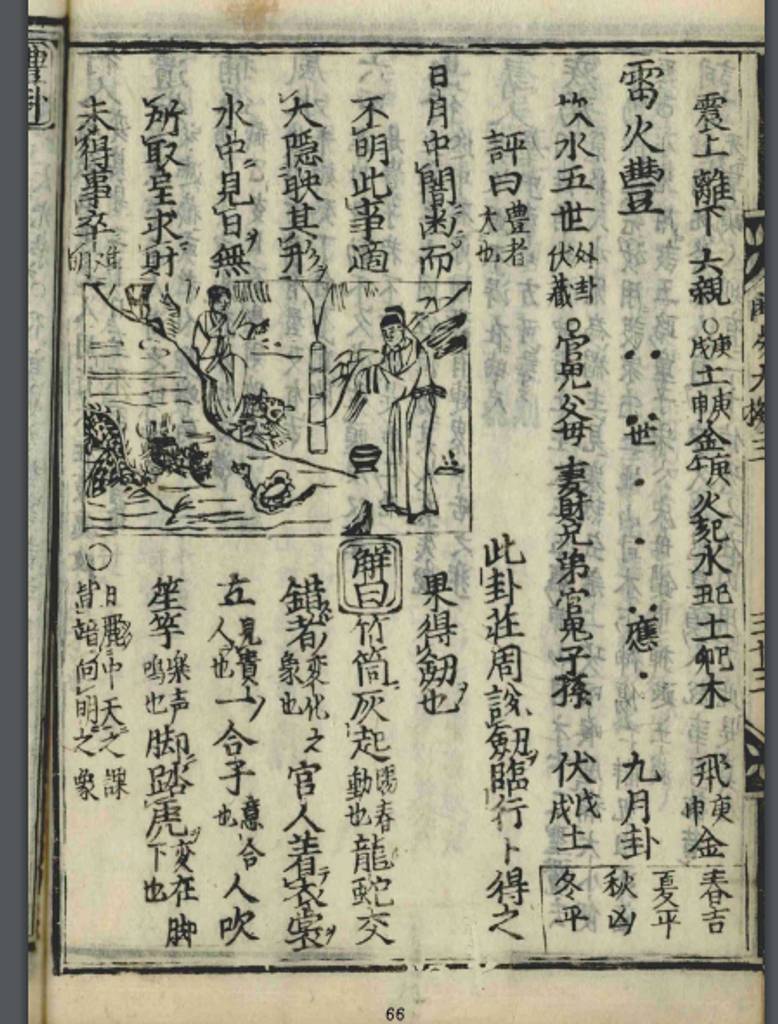 震上離下 六親○戌庚土申庚金午庚火亥己水丑己土卯己木 飛申庚金
雷火豐 世 應 九月卦
坎水五世 外卦伏藏 ○官鬼父母妻財兄弟官鬼子孫 伏戌戊土
春吉
夏平
秋凶
冬平
評曰 豊者大也
日月中闇而
不明此事適
大隱映其形
水中見日無
所取呈求財
未得事卒难明
此卦莊周說劔臨行卜得之
果得劔也
解曰 竹筒灰起陽春動也龍蛇交
錯者変化之象也官人着衣裳
立見貴人也一合子意合也人吹
笙竽楽声鳴也脚踏虎变在脚下也
○日麗中天之課
背暗向明之象
豊卦
66